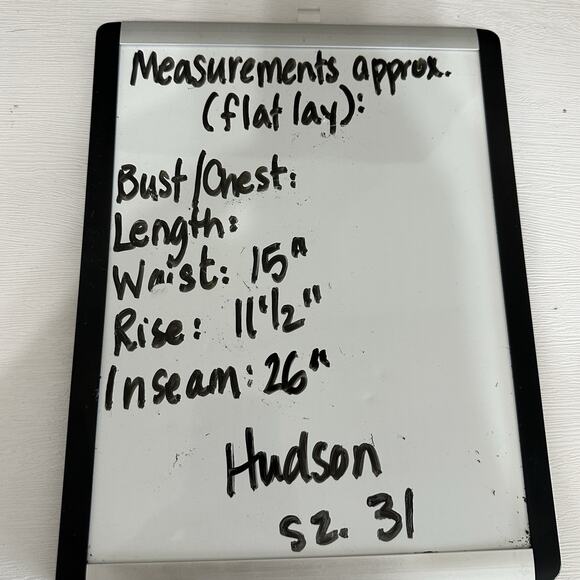 Measurements approx.
(flat lay):
Bust/Chest:
Length:
Waist: 15"
Rise: 11 1/2"
Inseam: 26"
Hudson
sz. 31